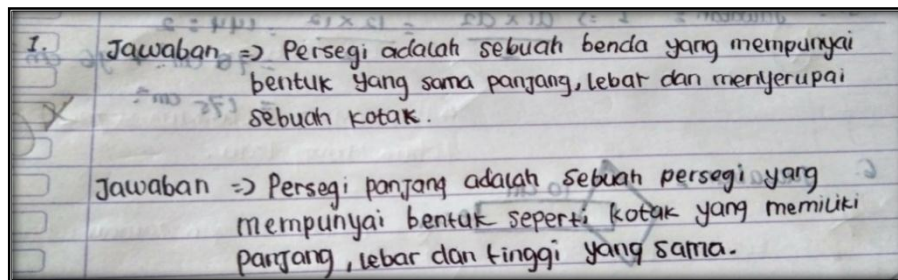 1. Jawaban => Persegi adalah sebuah benda yang mempunyai
bentuk yang sama panjang, lebar dan menyerupai
sebuah kotak.
Jawaban => Persegi panjang adalah sebuah persegi yang
mempunyai bentuk seperti kotak yang memiliki
panjang, lebar dan tinggi yang sama.